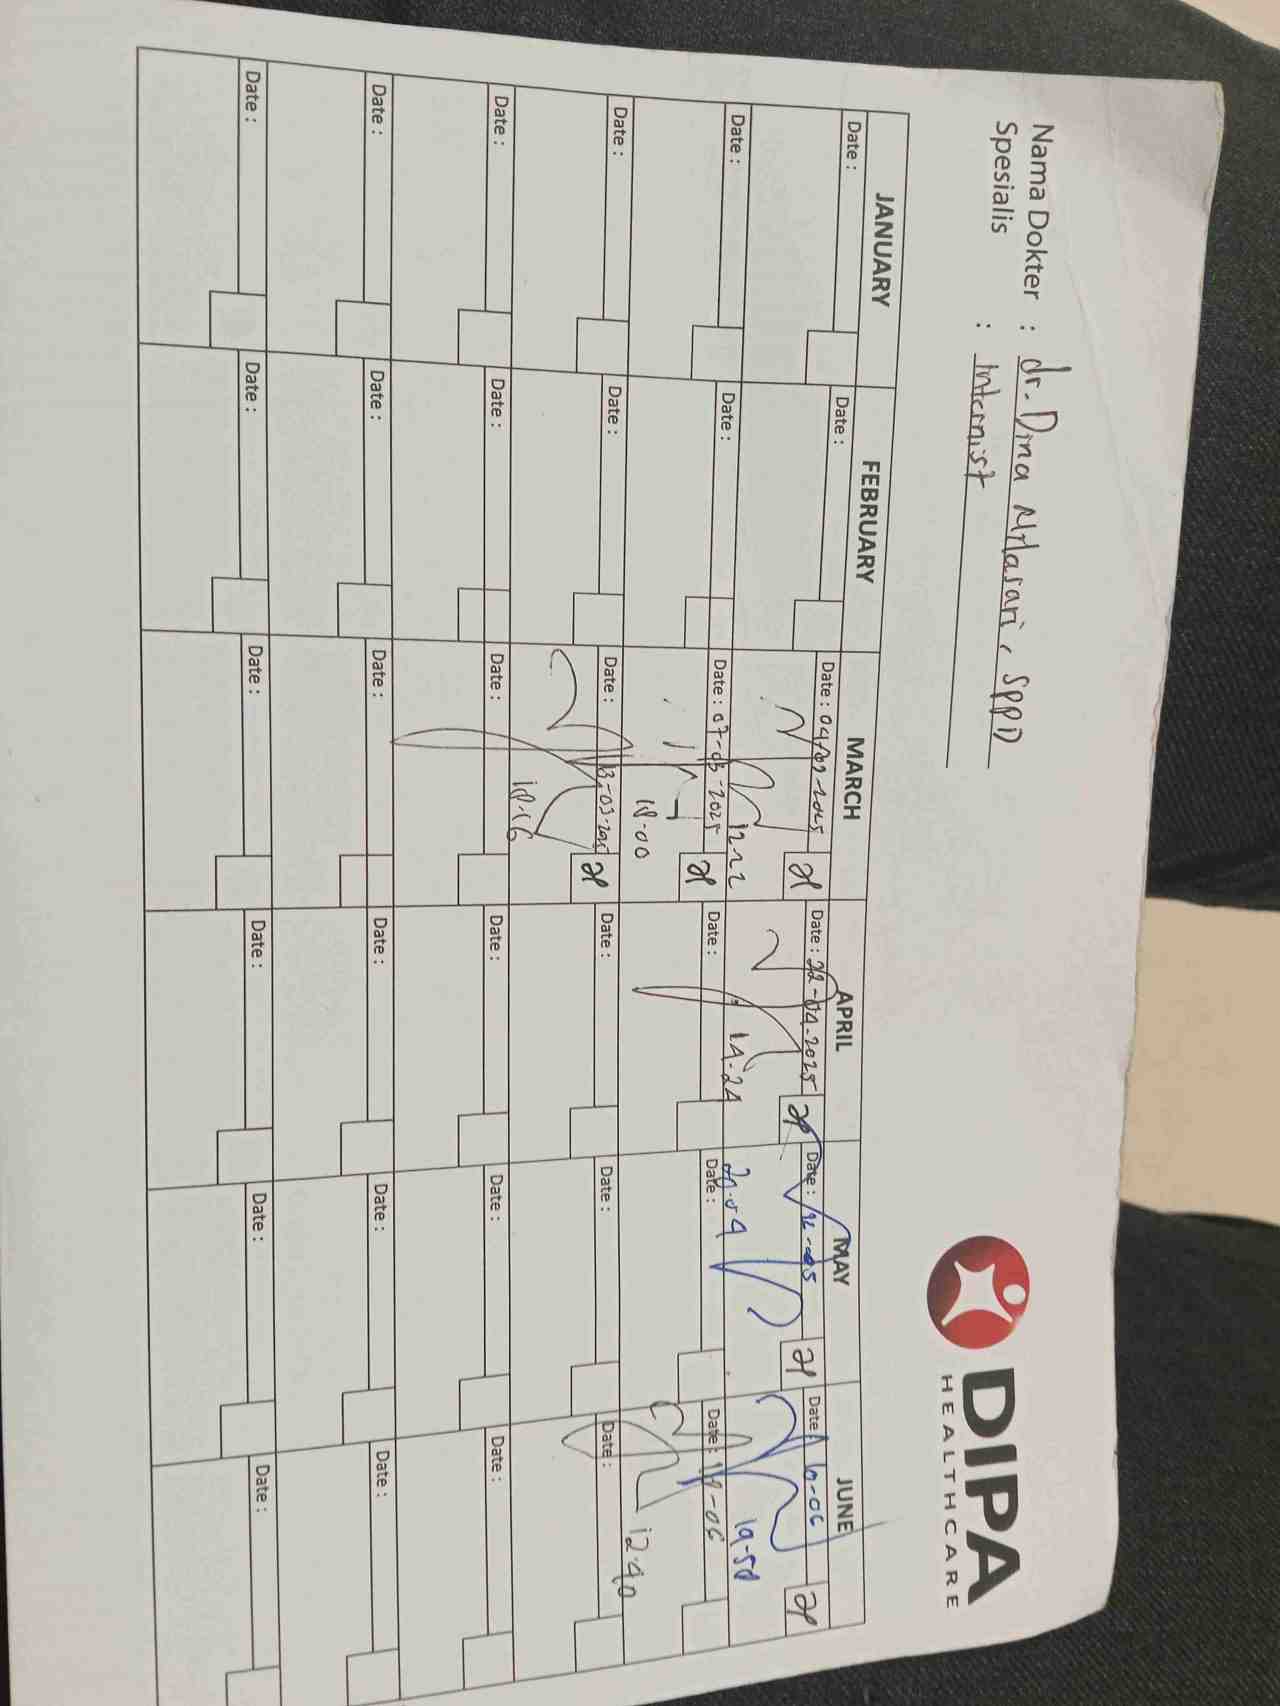 Nama Dokter : dr. Dina Nilasari, SPPD
Spesialis : Internist
DIPA
HEALTHCARE
JANUARY FEBRUARY MARCH APRIL MAY JUNE
Date : Date : Date : 04/03-2025 Date : 22-04-2025 Date : -05 Date : 10-06
12.22 14.24 20.04 19.50
Date : Date : Date : 07-03-2025 Date : Date : Date : -06
18.00 12.40
Date : Date : Date : 13-03-2025 Date : Date : Date :
18.16
Date : Date : Date : Date : Date : Date :
Date : Date : Date : Date : Date : Date :
Date : Date : Date : Date : Date : Date :